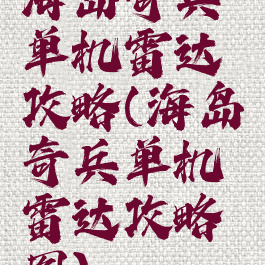 海岛奇兵
单机雷达
攻略(海岛
奇兵单机
雷达攻略
图)